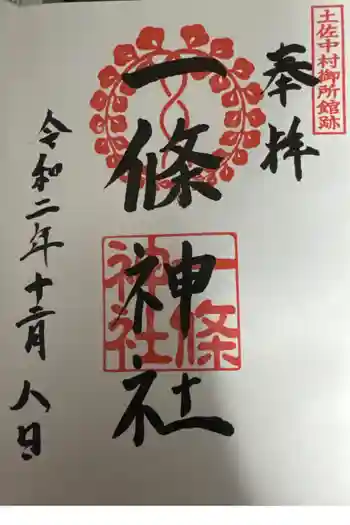 土佐中村御所館跡
奉拝
一條神社
一條
神社
令和二年十二月八日